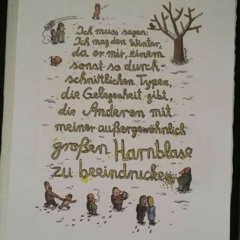 Ich muss sagen:
Ich mag den Winter,
da er mir, einem
sonst so durch-
schnittlichen Typen,
die Gelegenheit gibt,
die Anderen mit
meiner außergewöhnlich
großen Harnblase
zu beeindrucken